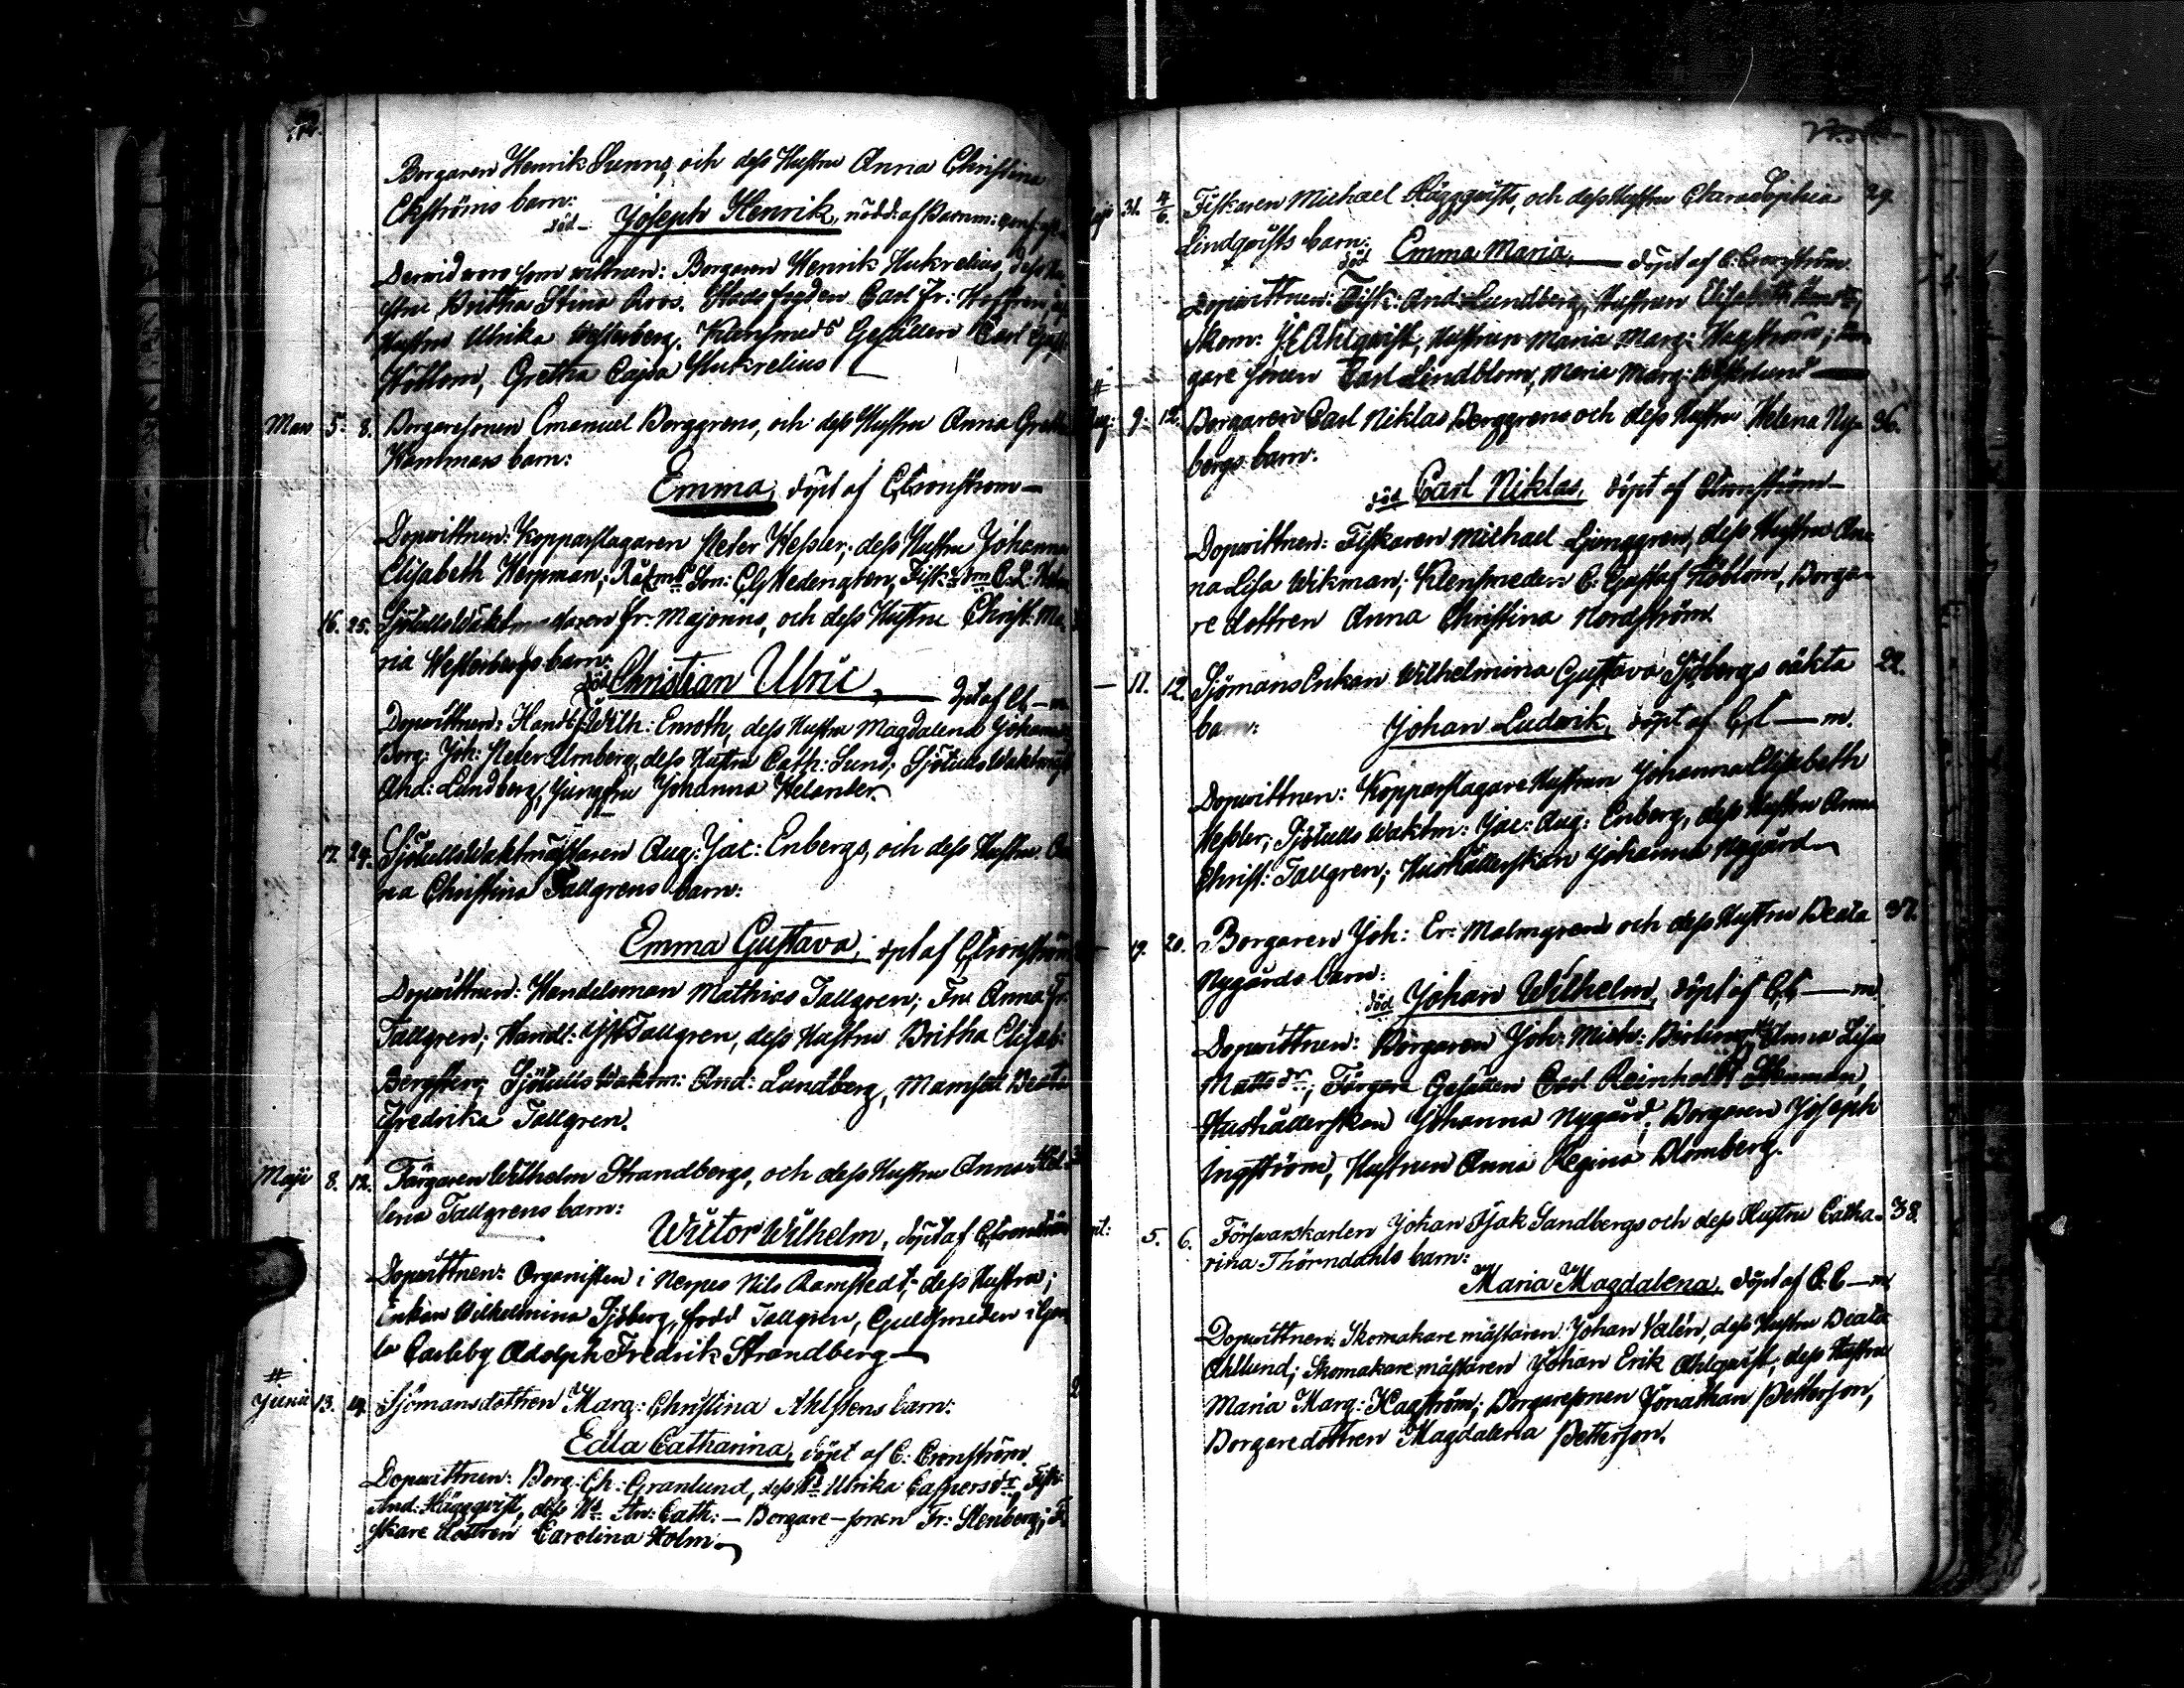 Borgaren Henrik Sunns och dess Hustru Anna Christina
Ekströms barn:
död Joseph Henrik, nödd: af Barnm:
Dervid voro som vittnen: Borgaren Henrik Hukrelius, dess Hu
stru Britha Stina Roos. Stads fogden Carl Fr: Hoffren,
Hustru Ulrika Westerberg. Klensmeds Gesällen Carl Gust:
Höblom, Gretha Cajsa Hukrelius
Mars 5. 8. Borgaresonen Emanuel Berggrens, och dess Hustru Anna Greta
Hammars barn:
Emma, döpt af C, Cronström
Dopvittnen: Kopparslagaren Peter Hessler, dess Hustru Johanna
Elisabeth Herpman;
16. 25. Fr: Majorins, och dess Hustru Christ: Ma
ria Westerbergs barn:
död Christian Ulric, döpt af C, C—m
Dopvittnen: Handl: Wilh: Enroth, dess Hustru Magdalena Johanna
Borg: Joh: Peter Urnberg, dess Hustru Cath: Sund; Sjötulls Waktmäst
And: Lundberg, Jungfru Johanna Helander
17. 24. Sjötulls Waktmästaren Aug: Jac: Enbergs, och dess Hustru An
na Christina Tallgrens barn:
Emma Gustava, döpt af C, Cronström
Dopvittnen: Handelsman Mathias Tallgren; Fru Anna Fr:
Tallgren; Handl: Tallgren, dess Hustru Britha Elisab:
Bergsten; Sjötulls Waktm: And: Lundberg, Mamsell Beata
Fredrika Tallgren.
Maji 8. 12. Färgaren Wilhelm Strandbergs, och dess Hustru Anna He
lena Tallgrens barn:
Wictor Wilhelm, döpt af C, Cronström
Dopvittnen: Organisten i Nerpes Nils Ramstedt, dess Hustru;
Enkan Wilhelmina Sjöberg, född Tallgren, Guldsmeden i Gam
la Carleby Adolph Fredrik Strandberg
#
Junii 13. 14. Sjömansdottren Marg: Christina Ahlstens barn:
Edla Catharina, döpt af C: Cronström.
Dopvittnen: Borg: Ch: Granlund, dess Ha Ulrika Caspersdr, Fisk:
And: Häggqvist, dess Ha An: Cath: — Borgare-sonen Fr: Stenberg; Fi
skare dottren Carolina Holm
31. 4/6. Fiskaren Michael Häggqvists, och dess Hustru Clara Sophia 29.
Lindqvists barn:
död Emma Maria, döpt af C: Cronström
Dopvittnen: Fisk: And: Lundberg, Hustrun Elisabeth
Skom: J, E Ahlqvist, Hustrun Maria Marg: Hagström; Bor
gare sonen Carl Lindblom, Maria Marg:
#
Aug: 9. 12. Borgaren Carl Niklas Berggrens och dess Hustru Helena Ny- 36.
bergs barn:
död Carl Niklas, döpt af Cronström
Dopvittnen: Fiskaren Michael Ljunggren, dess Hustru An
na Lisa Wikman; Klensmeden C: Gustaf Höblom, Borga-
re dottren Anna Christina Nordström
— 11. 12. Sjömans Enkan Wilhelmina Gustava Sjöbergs oäkta 22.
barn: Johan Ludvik, döpt af C, C—m.
Dopvittnen: Kopparslagare Hustrun Johanna Elisabeth
Hessler; Sjötulls Waktm: Jac: Aug: Enberg, dess Hustru Anna
Christ: Tallgren; Hushållerskan Johanna Nygård
— 19. 20. Borgaren Joh: Er: Malmgrens och dess Hustru Beata 37.
Nygårds barn:
död Johan Wilhelm, döpt af C, C—m
Dopvittnen: Borgaren Joh: Mich: Anna Lisa
Mattsdr; Färgare Gesällen Carl Reinhold Stenman,
Hushållerskan Johanna Nygård; Borgaren Joseph
Ingström, Hustrun Anna Regina Blomberg.
5. 6. Försvarskarlen Johan Isak Sandbergs och dess Hustru Catha- 38.
rina Thörndahls barn:
Maria Magdalena, döpt af C. C—m
Dopvittnen: Skomakare mästaren Johan Valén, dess Hustru Beata
Ahllund; Skomakare mästaren Johan Erik Ahlqvist, dess Hustru
Maria Marg: Hagström; Borgaresonen Jonathan Petterson,
Borgaredottren Magdalena Petterson.